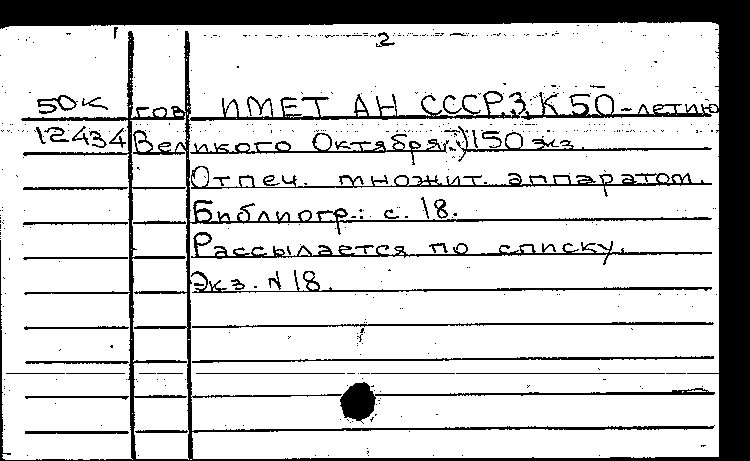 2
50к гов ИМЕТ АН СССР.З.К 50-летию
12434 Великого Октября.) 150 экз.
Отпеч. множит. аппаратом.
Библиогр.: с. 18.
Рассылается по списку.
Экз. N 18.